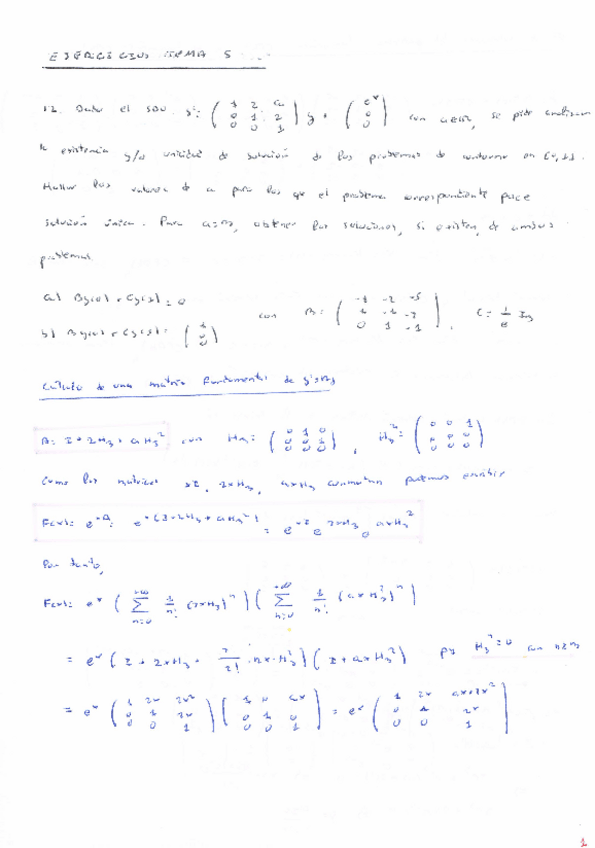 EJERCICIOS TEMA 5
12. Dado el SDO y' = ( 1 2 a ; 0 1 2 ; 0 0 1 ) y + ( e^x ; 0 ; 0 ) con a∈ℝ, se pide analizar
la existencia y/o unicidad de solución de los problemas de contorno en [0,1].
Hallar los valores de a para los que el problema correspondiente posee
solución única. Para a= , obtener las soluciones, si existen, de ambos
problemas.
a) By(0) + Cy(1) = 0
con B = ( -1 -2 -5 ; 1 -1 -2 ; 0 1 -1 ), C = 1/e I₃
b) By(0) + Cy(1) = ( 1 ; 0 ; 0 )
Cálculo de una matriz fundamental de y'=Ay
A = I + 2H₃ + aH₃² con H₃ = ( 0 1 0 ; 0 0 1 ; 0 0 0 ), H₃² = ( 0 0 1 ; 0 0 0 ; 0 0 0 )
Como las matrices xI, 2xH₃, axH₃ conmutan podemos escribir
F(x) = e^{xA} = e^{x(I+2H₃+aH₃²)} = e^{xI} e^{2xH₃} e^{axH₃²}
Por tanto,
F(x) = e^x ( Σ_{n=0}^{+∞} 1/n! (2xH₃)^n ) ( Σ_{n=0}^{+∞} 1/n! (axH₃²)^n )
= e^x ( I + 2xH₃ + H₃² ) ( I + axH₃² ) H₃^n = 0 con n≥3
= e^x ( 1 2x 2x² ; 0 1 2x ; 0 0 1 ) ( 1 0 ax ; 0 1 0 ; 0 0 1 ) = e^x ( 1 2x ax+2x² ; 0 1 2x ; 0 0 1 )
1